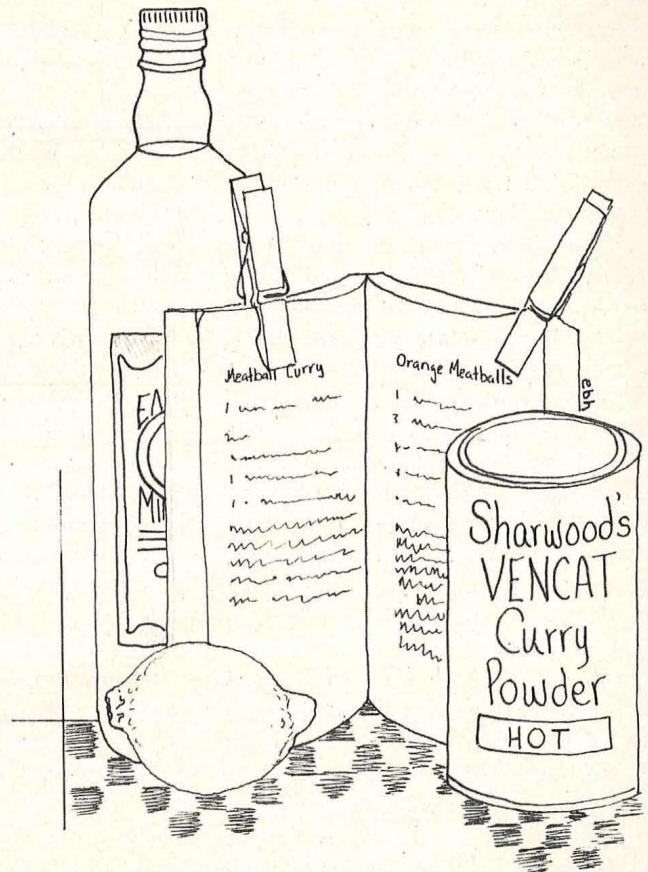 EA
MI
Meatball Curry
Orange Meatballs
ebh
Sharwood's
VENCAT
Curry
Powder
HOT